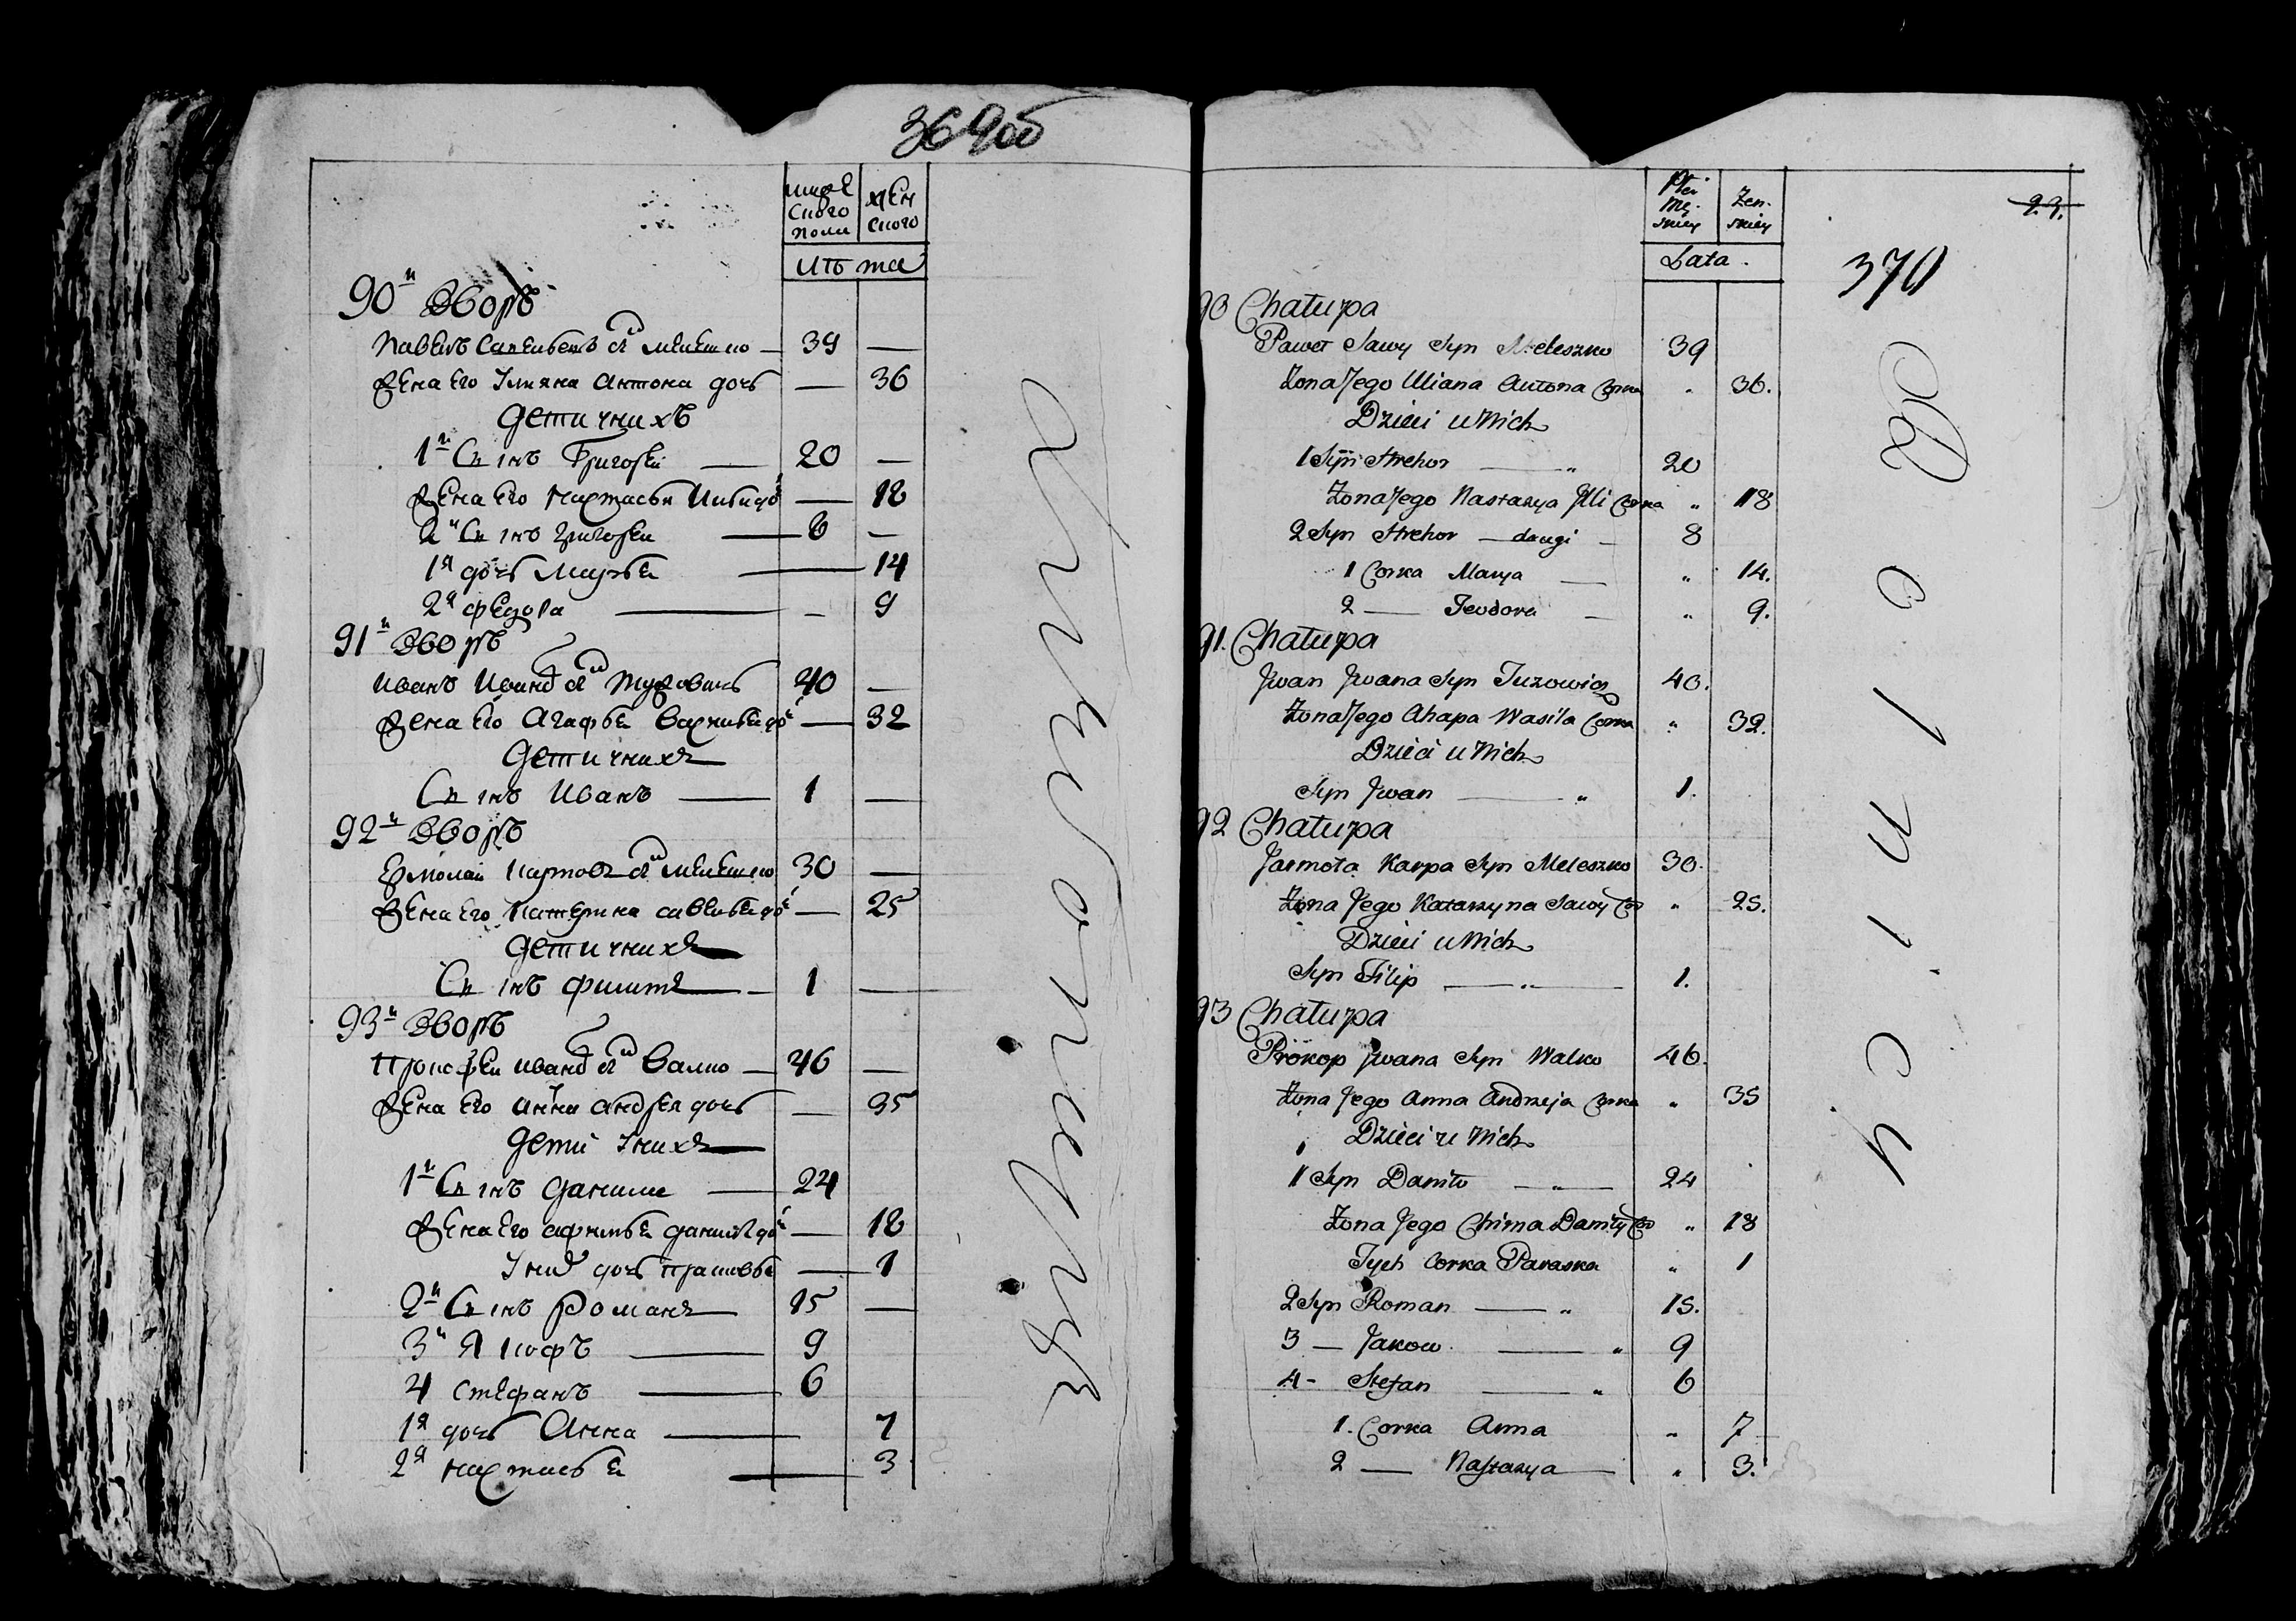 369об
мужеского полu
женского
лѣта
90й Дворъ
Павелъ Савельевъ сн Мелешко — 39 —
Жена его Ульяна Антона дочь — 36
Дети у нихъ
1й Сынъ Григорей — 20 —
Жена его Настасья — 18
2й Сынъ Григорей — 8 —
1я дочь Марья — 14
2я Федора — 9
91й Дворъ
Иванъ Иванов сн Тузовичь 40 —
Жена его Агафья Василья до — 32
Дети у нихъ
Сынъ Иванъ — 1 —
92й Дворъ
Ермолай Карпов сн Мелешко 30 —
Жена его Катерина Савелья до — 25
Дети у нихъ
Сынъ Филипъ — 1 —
93й Дворъ
Прокофей Иванов сн Валко — 46 —
Жена его Анна Андрея дочь — 35
Дети у нихъ
1й Сынъ Данило — 24
Жена его Афимья Данила до — 18
У них дочь Прасковья — 1
2й Сынъ Романъ 15 —
3й Якофъ — 9
4 Стефанъ — 6
1я дочь Анна — 7
2я Настасья — 3
23.
370
Płci Mę-skiey
Żen-skiey
Lata.
90 Chałupa
Paweł Sawy Syn Meleszko 39
Żona Jego Uliana Antona Corka „ 36.
Dzieci u Nich
1 Syn Hrehor — „ 20
Żona Jego Nastazya Illi Corka „ 18
2 Syn Hrehor — drugi — 8
1 Corka Marya — „ 14.
2 — Teodora — „ 9.
91. Chałupa
Jwan Jwana Syn Tuzowicz 40.
Żona Jego Ahapa Wasila Corka „ 32.
Dzieci u Nich
Syn Jwan — „ 1.
92 Chałupa
Jarmoła Karpa Syn Meleszko 30.
Żona Jego Katarzyna Sawy Co „ 25.
Dzieci u Nich
Syn Filip — „ — 1.
93 Chałupa
Prokop Jwana Syn Walko 46.
Żona Jego Anna Andrzeja Corka „ 35
Dzieci u Nich
1 Syn Daniło — „ — 24
Żona Jego Chima Daniły Co „ 18
Tych Corka Paraska „ 1
2 Syn Roman — „ 15.
3 — Jakow. — „ 9
4 - Stefan — „ 6
1. Corka Anna „ 7
2 — Nastazya — „ 3.